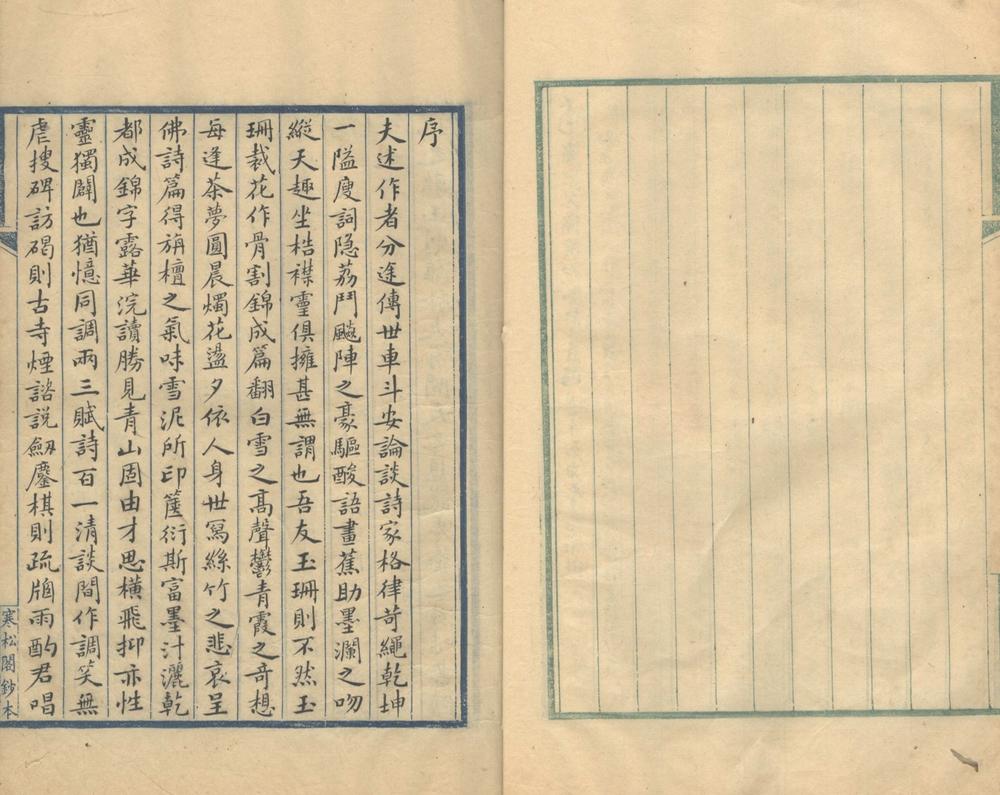 序
夫述作者分途傳世車斗安論談詩家格律苛繩乾坤
一隘廋詞隐荔鬥飈陣之豪驅酸語畫蕉助墨瀾之吻
縱天趣坐梏襟靈俱擁甚無謂也吾友玉珊則不然玉
珊裁花作骨割錦成篇翻白雪之高聲鬱青霞之竒想
每逢茶夢圓晨燭花盪夕依人身世寫絲竹之悲哀呈
佛詩篇得旃檀之氣味雪泥所印篋衍斯富墨汁灑乾
都成錦字露華浣讀勝見青山固由才思橫飛抑亦性
靈獨闢也猶憶同調兩三賦詩百一清談間作調笑無
虐搜碑訪碣則古寺煙諮説劔鏖棋則疏牕雨酌君唱
寒松閣鈔本